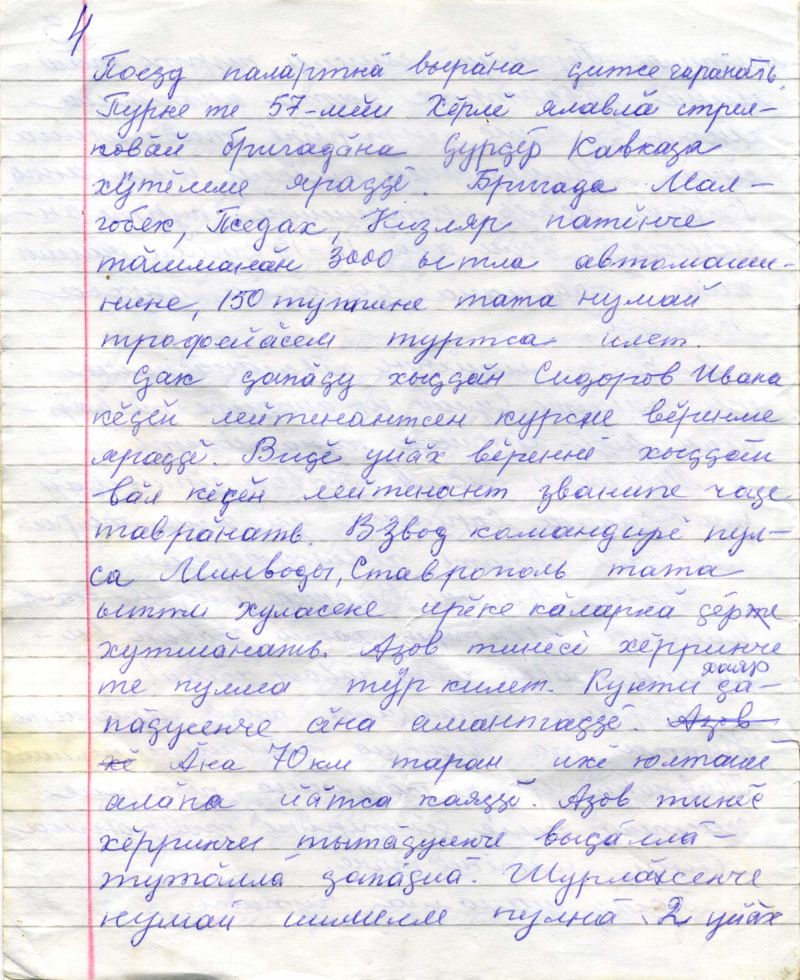 4
Поезд палӑртнӑ вырӑна ҫитсе чарӑнать.
Пурне те 57-мӗш Хӗрлӗ ялавлӑ стрел-
ковӑй бригадӑна Ҫурҫӗр Кавказа
хӳтӗлеме яраҫҫӗ. Бригада Мал-
гобек, Пседах, Кизляр патӗнче
тӑшманӑн 3000 ытла автомаши-
нине, 150 тупине тата нумай
трофейӑсем туртса илет.
Ҫак ҫапӑҫу хыҫҫӑн Сидоров Ивана
кӗҫӗн лейтенантсен курсне вӗренме
яраҫҫӗ. Виҫӗ уйӑх вӗреннӗ хыҫҫӑн
вӑл кӗҫӗн лейтенант званипе чаҫе
таврӑнать. Взвод командирӗ пул-
са Минводы, Ставрополь тата
ытти хуласене ирӗке кӑларнӑ ҫӗрте
хутшӑнать. Азов тинӗсӗ хӗрринче
те пулма тӳр килет. Кукти хаяр ҫа-
пӑҫусенче ӑна амантаҫҫӗ. Азов
хӗ Ӑна 70 км таран икӗ юлташӗ
алӑпа йӑтса каяҫҫӗ. Азов тинӗс
хӗрринчи тытӑҫусенче выҫӑллӑ-
тутӑллӑ ҫапӑҫнӑ. Шурлӑхсенче
нумай шыв пулнӑ. 2 уйӑх